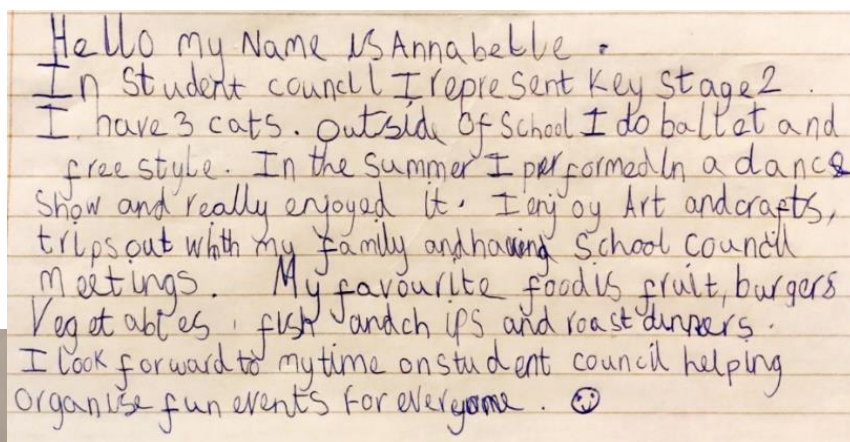 Hello my Name is Annabelle.
In Student council I represent Key Stage 2.
I have 3 cats. Outside of School I do ballet and
freestyle. In the summer I performed In a dance
Show and really enjoyed it. I enjoy Art and crafts,
trips out with my family and having School council
Meetings. My favourite food is fruit, burgers
Vegetables, fish and chips and roast dinners.
I look forward to my time on student council helping
organise fun events for everyone. ☺